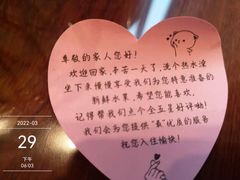 尊敬的家人您好!
欢迎回家,辛苦一天了,洗个热水澡
坐下来慢慢享受我们为您特意准备的
新鲜水果,希望您能喜欢,
记得帮我们点个全五星好评哟!
我们会为您提供“最”优质的服务
祝您入住愉快!
2022-03
29
下午
06:03